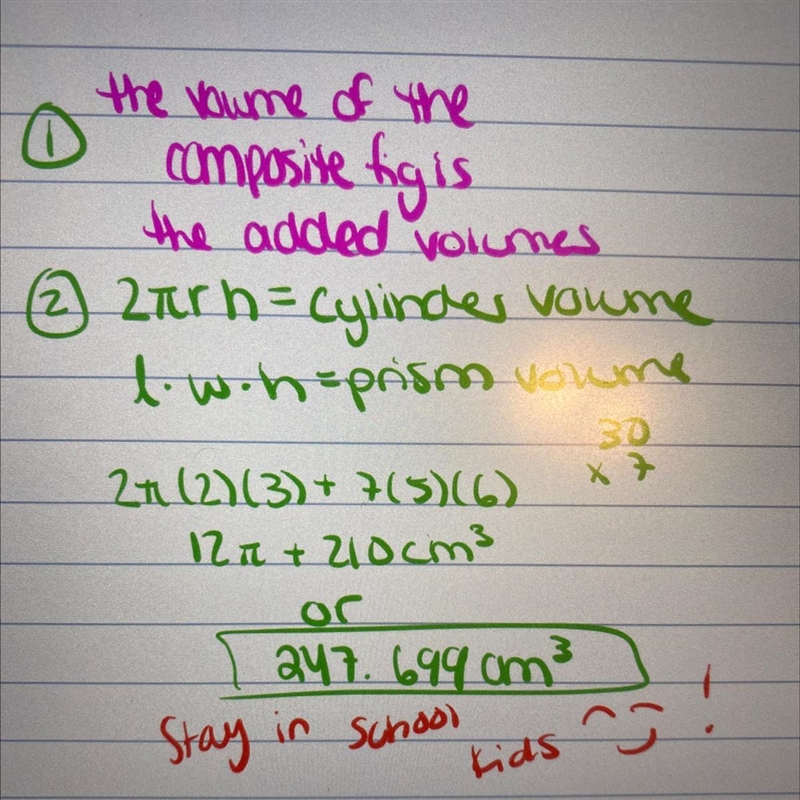 ① the volume of the
composite fig is
the added volumes
② 2πrh = cylinder volume
l·w·h = prism volume
30
x 7
2π(2)(3) + 7(5)(6)
12π + 210cm³
or
247.699 cm³
Stay in school
kids !